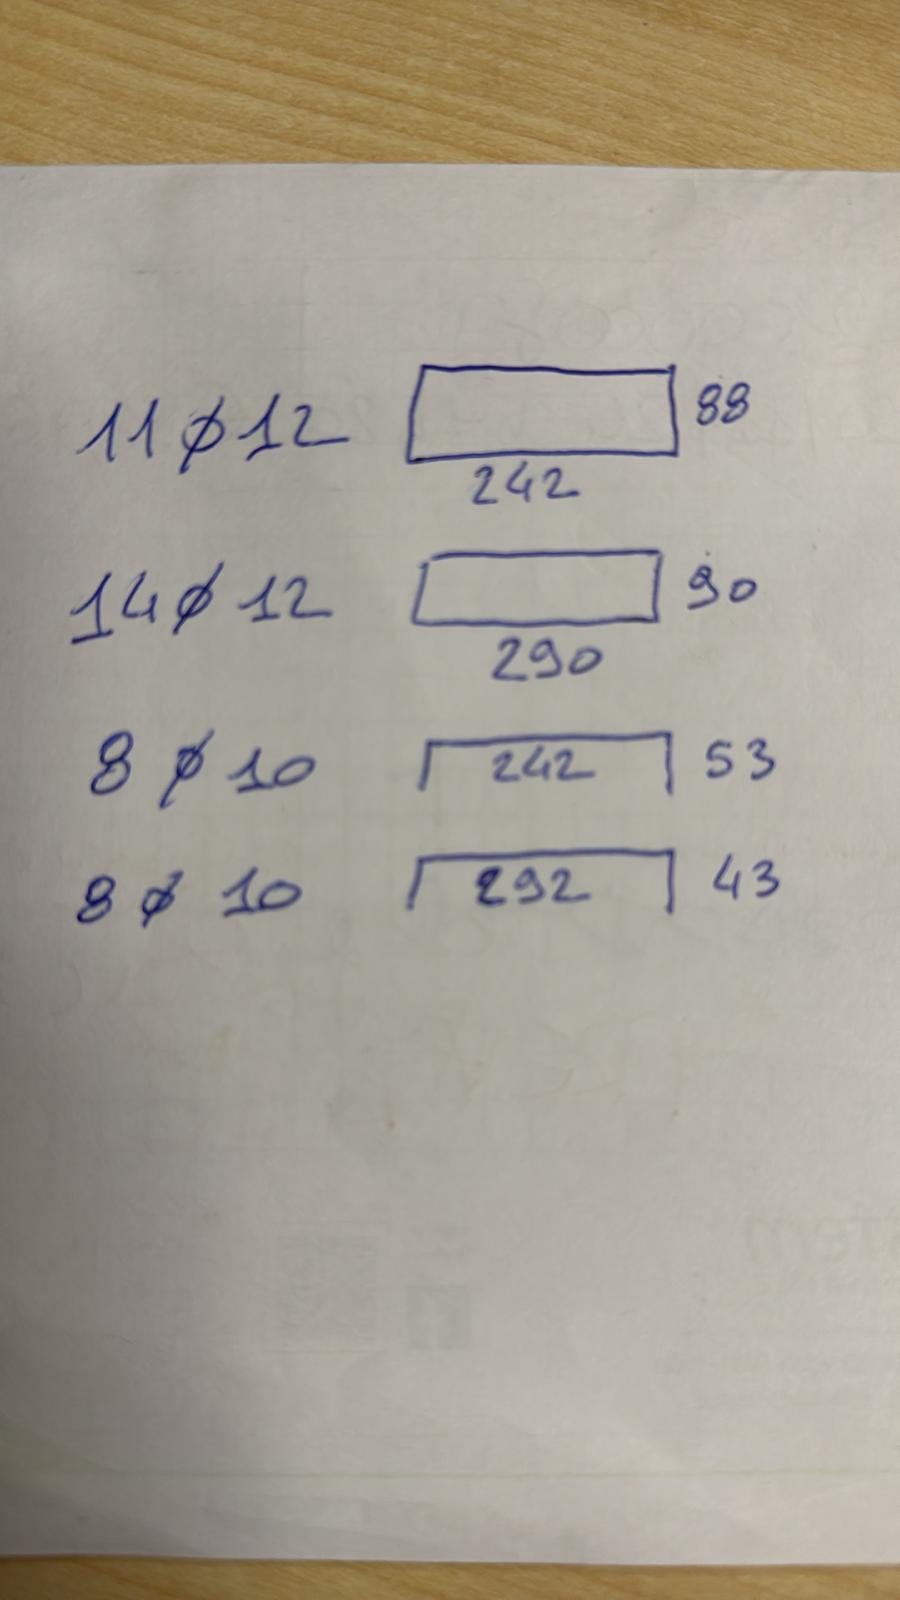 11 ø 12 88
242
14 ø 12 90
290
8 ø 10 242 53
8 ø 10 292 43